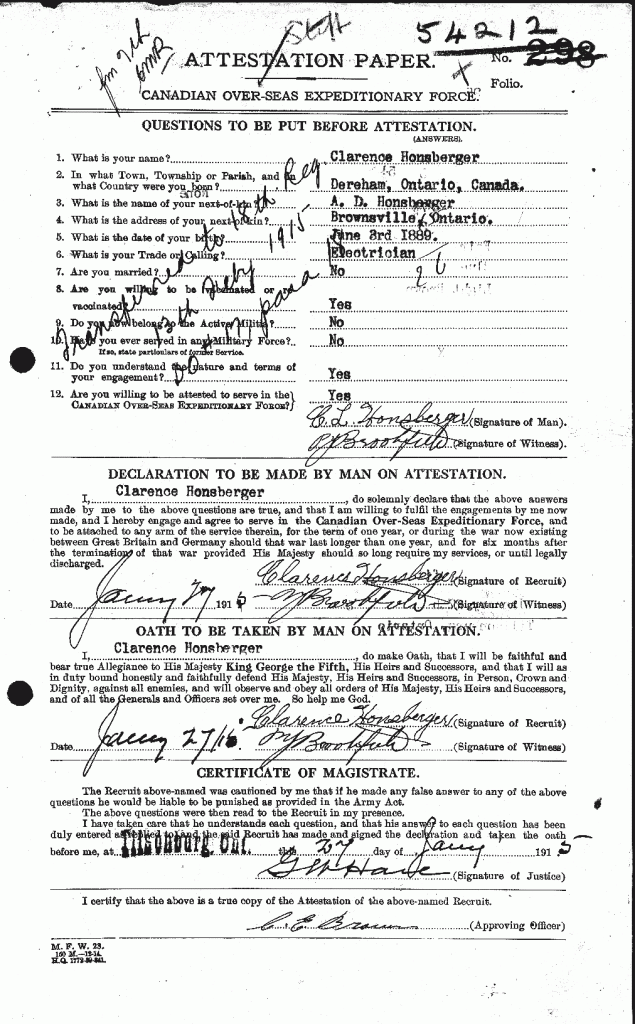 Staff
fm 7th
CMR
54212
ATTESTATION PAPER.
No. 298
Folio.
CANADIAN OVER-SEAS EXPEDITIONARY FORCE.
QUESTIONS TO BE PUT BEFORE ATTESTATION.
(ANSWERS).
1. What is your name? Clarence Honsberger
2. In what Town, Township or Parish, and in
what Country were you born? Dereham, Ontario, Canada.
3. What is the name of your next-of-kin? A. D. Honsberger
4. What is the address of your next-of-kin? Brownsville, Ontario.
5. What is the date of your birth? June 3rd 1889.
6. What is your Trade or Calling? Electrician
7. Are you married? No
8. Are you willing to be vaccinated or re-
vaccinated? Yes
9. Do you now belong to the Active Militia? No
10. Have you ever served in any Military Force? No
If so, state particulars of former Service.
11. Do you understand the nature and terms of
your engagement? Yes
12. Are you willing to be attested to serve in the
CANADIAN OVER-SEAS EXPEDITIONARY FORCE? Yes
Transferred to 18th Reg
13th July 1915
C. L. Honsberger (Signature of Man).
Brookfield (Signature of Witness).
DECLARATION TO BE MADE BY MAN ON ATTESTATION.
I, Clarence Honsberger, do solemnly declare that the above answers
made by me to the above questions are true, and that I am willing to fulfil the engagements by me now
made, and I hereby engage and agree to serve in the Canadian Over-Seas Expeditionary Force, and
to be attached to any arm of the service therein, for the term of one year, or during the war now existing
between Great Britain and Germany should that war last longer than one year, and for six months after
the termination of that war provided His Majesty should so long require my services, or until legally
discharged.
Clarence Honsberger (Signature of Recruit)
Date Jany 27 1915 Brookfield (Signature of Witness)
OATH TO BE TAKEN BY MAN ON ATTESTATION.
I, Clarence Honsberger, do make Oath, that I will be faithful and
bear true Allegiance to His Majesty King George the Fifth, His Heirs and Successors, and that I will as
in duty bound honestly and faithfully defend His Majesty, His Heirs and Successors, in Person, Crown and
Dignity, against all enemies, and will observe and obey all orders of His Majesty, His Heirs and Successors,
and of all the Generals and Officers set over me. So help me God.
Clarence Honsberger (Signature of Recruit)
Date Jany 27/15 Brookfield (Signature of Witness)
CERTIFICATE OF MAGISTRATE.
The Recruit above-named was cautioned by me that if he made any false answer to any of the above
questions he would be liable to be punished as provided in the Army Act.
The above questions were then read to the Recruit in my presence.
I have taken care that he understands each question, and that his answer to each question has been
duly entered as replied to, and the said Recruit has made and signed the declaration and taken the oath
before me, at Tillsonburg, Ont. this 27 day of Jany 1915
G W Hare (Signature of Justice)
I certify that the above is a true copy of the Attestation of the above-named Recruit.
C. E. Brown (Approving Officer)
M. F. W. 23.
150 M.—12-14.
H.Q. 1772-39-841.